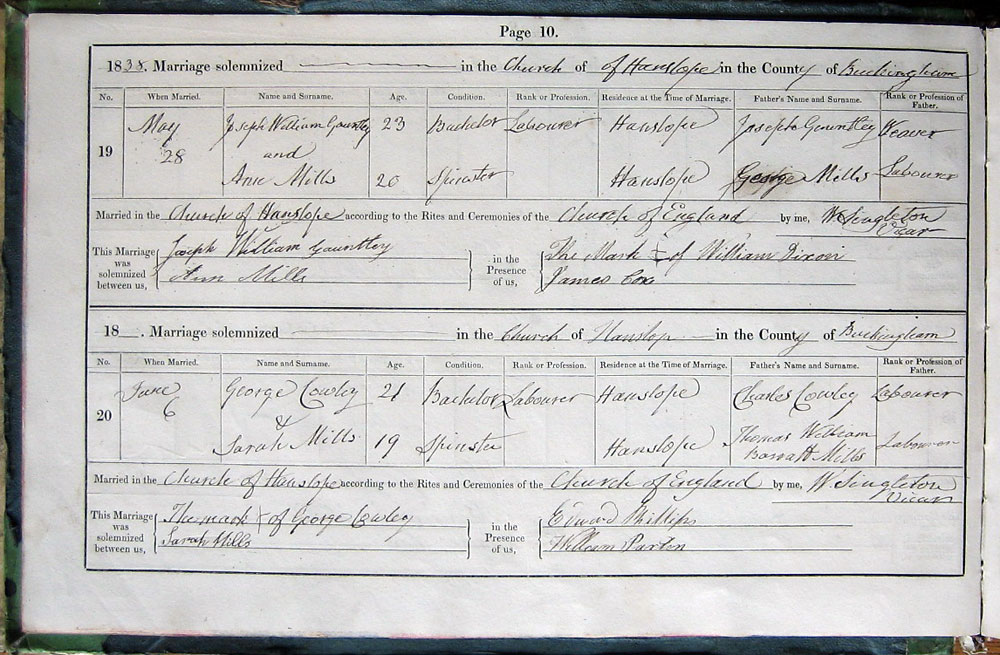 Page 10.
1838. Marriage solemnized in the Church of of Hanslope in the County of Buckingham
No. When Married. Name and Surname. Age. Condition. Rank or Profession. Residence at the Time of Marriage. Father's Name and Surname. Rank or Profession of Father.
19 May 28 Joseph William Gauntley 23 Bachelor Labourer Hanslope Joseph Gauntley Weaver
and
Ann Mills 20 Spinster Hanslope George Mills Labourer
Married in the Church of Hanslope according to the Rites and Ceremonies of the Church of England by me, W Singleton Vicar
This Marriage was solemnized between us, Joseph William Gauntley
Ann Mills
in the Presence of us, The Mark + of William Dixon
James Cox
18 . Marriage solemnized in the Church of Hanslop in the County of Buckingham
No. When Married. Name and Surname. Age. Condition. Rank or Profession. Residence at the Time of Marriage. Father's Name and Surname. Rank or Profession of Father.
20 June 6 George Cowley 21 Bachelor Labourer Hanslope Charles Cowley Labourer
&
Sarah Mills 19 Spinster Hanslope Thomas William Barratt Mills Labourer
Married in the Church of Hanslope according to the Rites and Ceremonies of the Church of England by me, W. Singleton Vicar
This Marriage was solemnized between us, The mark + of George Cowley
Sarah Mills
in the Presence of us, Edward Phillips
William Parton